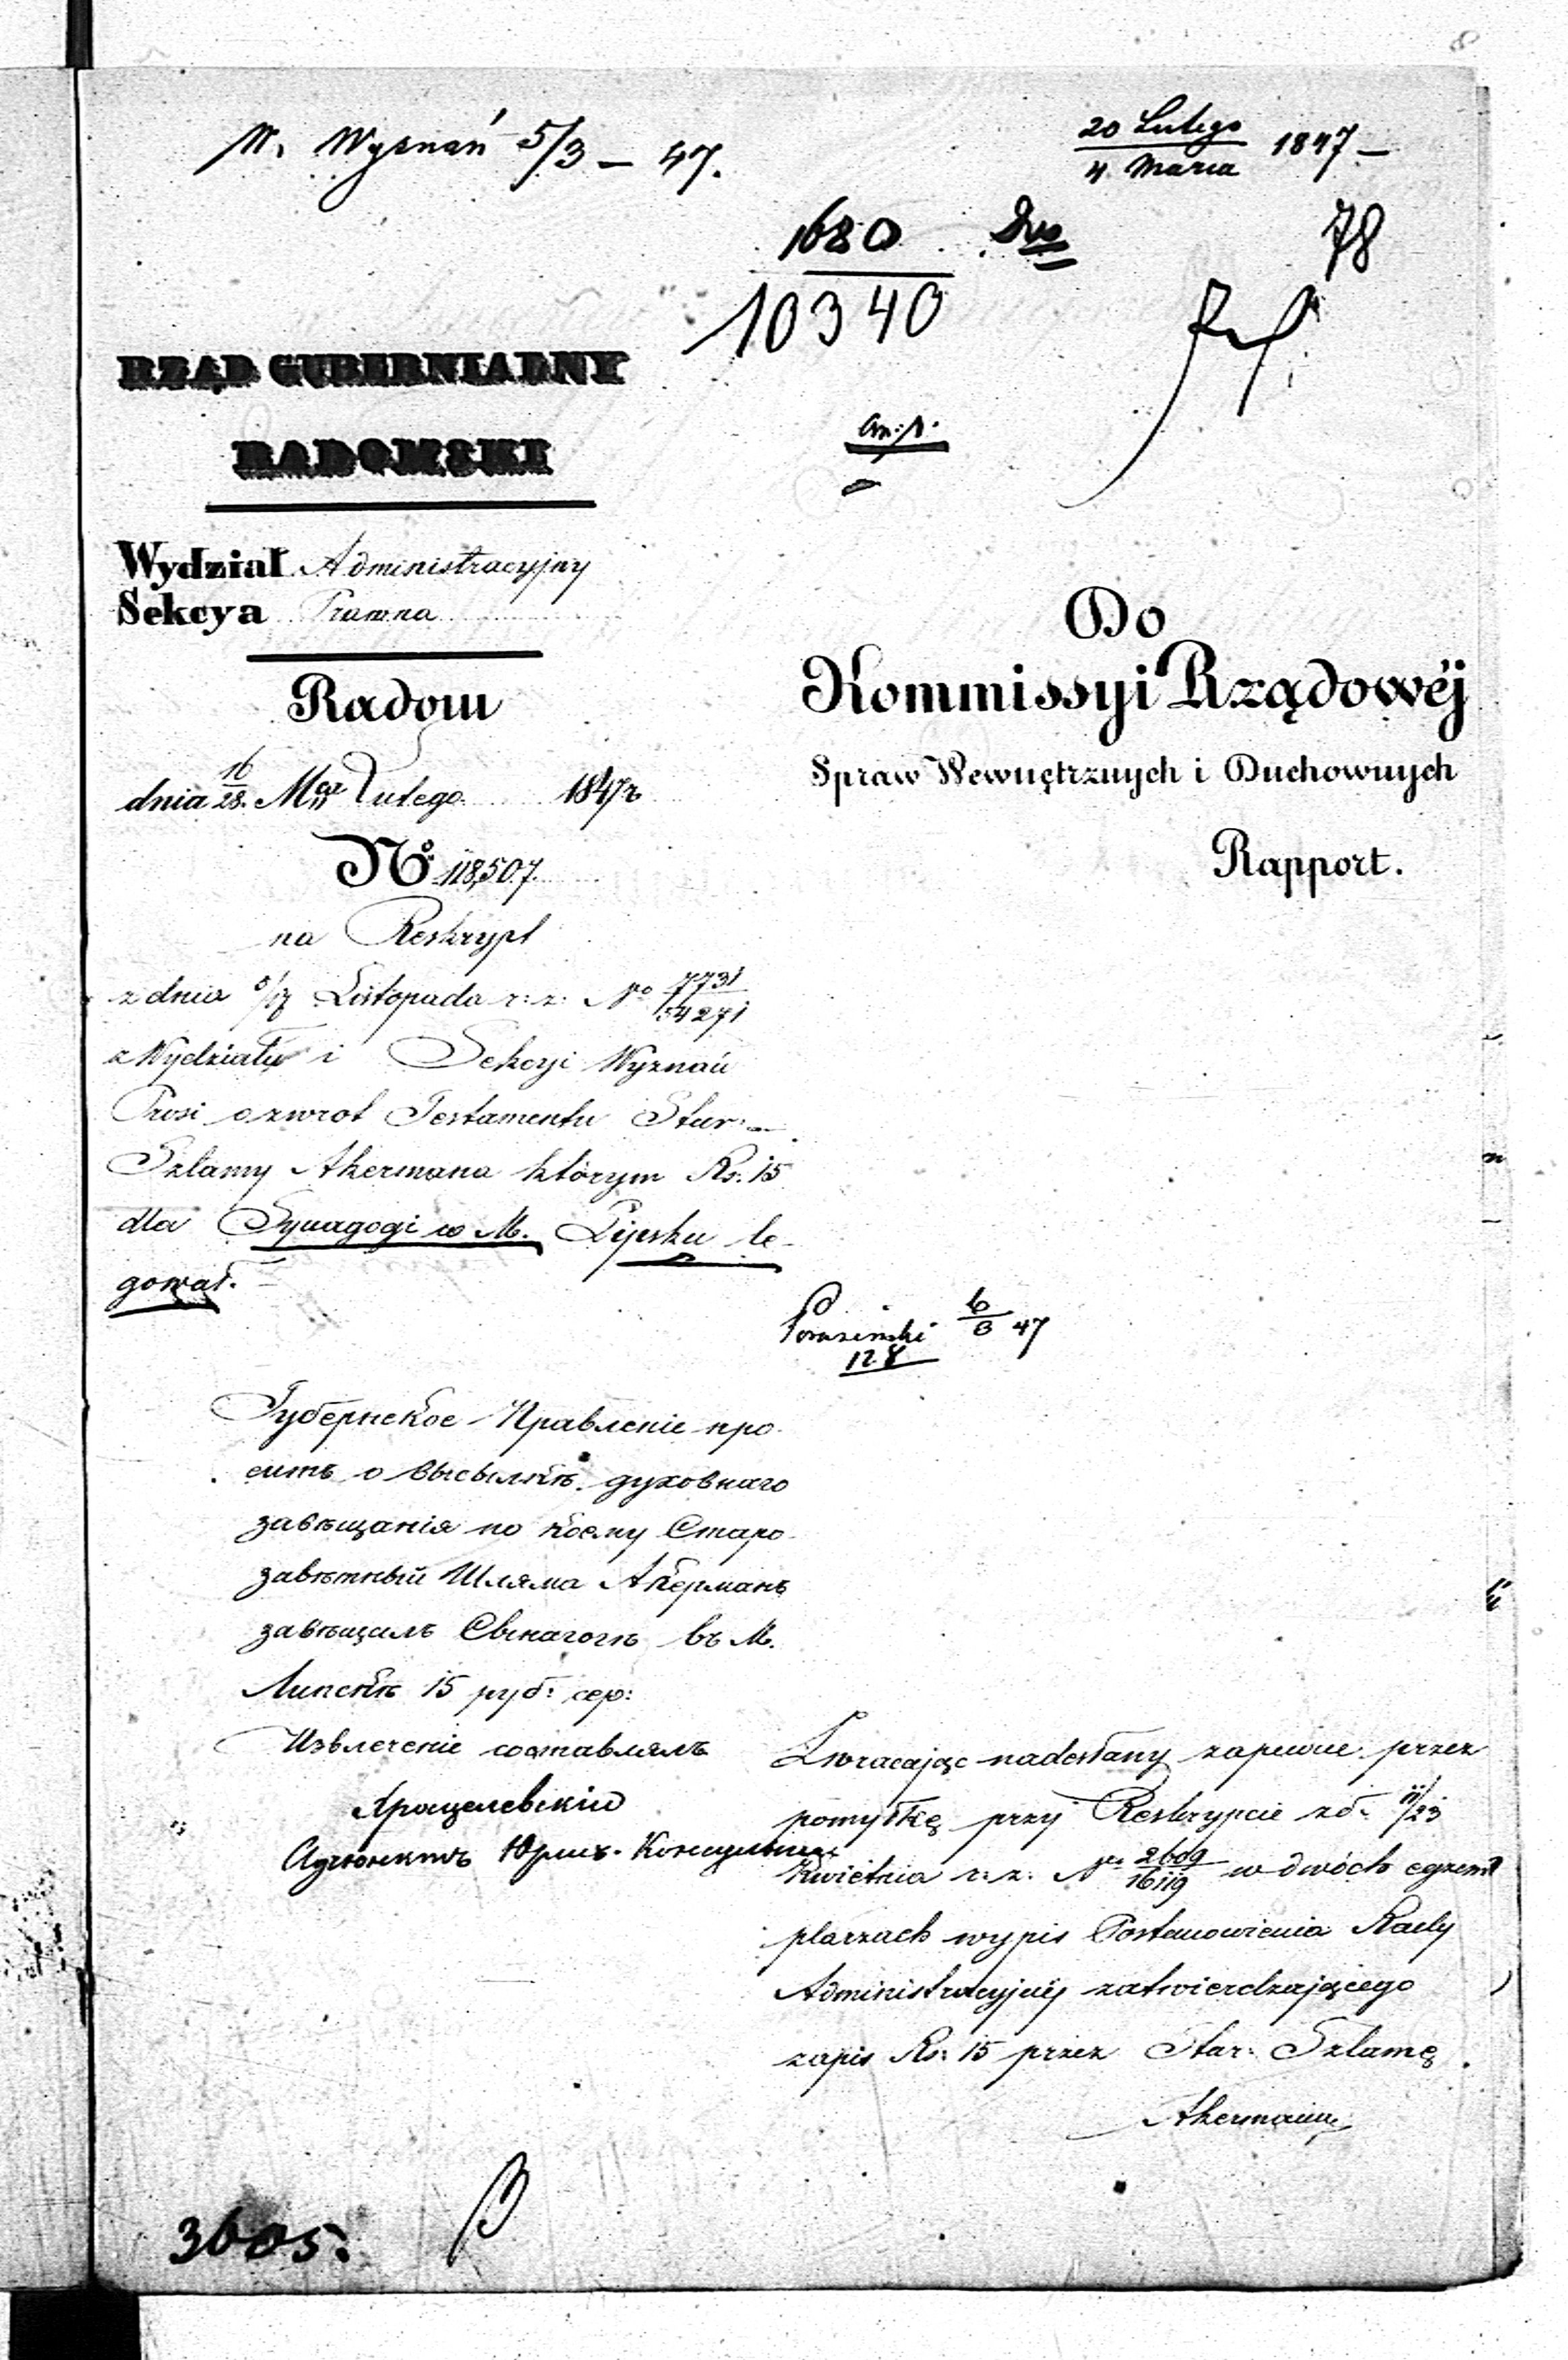 W. Wyznań 5/3 – 47.
20 Lutego / 4 Marca 1847 –
1680
10340
78
RZĄD GUBERNIALNY
RADOMSKI
Wydział Administracyjny
Sekcya Prawna
Radom
dnia 16/28. Lutego 1847 r
No 118,507.
na Reskrypt
z dnia 5/17 Listopada r: z: No 7731/54271
z Wydziału i Sekcyi Wyznań
Prosi o zwrot Testamentu Star:
Szlamy Akermana którym Rs: 15
dla Synagogi w M. Lipsku le-
gował.
Do
Kommissyi Rządowéj
Spraw Wewnętrznych i Duchownych
Rapport.
6/3 47
128
Губернское Правленіе про-
ситъ о высылкѣ духовнаго
завѣщанія по коему Старо-
завѣтный Шляма Акерманъ
завѣщалъ Синагогѣ въ М.
Липскѣ 15 руб: сер:
Извлеченіе составлялъ
Адъюнктъ Юрис-Консульта
Zwracając nadesłany zapewne przez
pomyłkę przy Reskrypcie z d: 11/23
Kwietnia r: z: No 2609/16119 w dwóch egzem
plarzach wypis Postanowienia Rady
Administracyjnéj zatwierdzającego
zapis Rs: 15 przez Star: Szlamę
Akermana
3605.